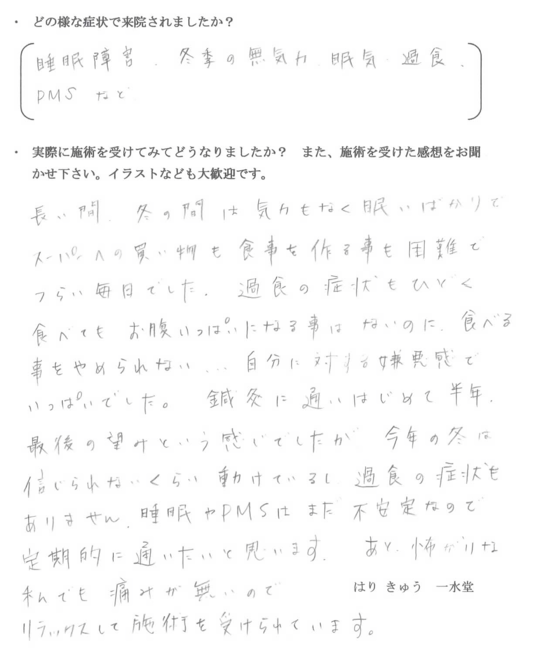 ・ どの様な症状で来院されましたか？
睡眠障害、冬季の無気力、眠気、過食、
PMS など
・ 実際に施術を受けてみてどうなりましたか？ また、施術を受けた感想をお聞
かせ下さい。イラストなども大歓迎です。
長い間、冬の間は気力もなく眠いばかりで
スーパーへの買い物も食事を作る事も困難で
つらい毎日でした。過食の症状もひどく
食べても お腹いっぱいになる事は ないのに、食べる
事をやめられない... 自分に対する嫌悪感で
いっぱいでした。 鍼灸に通いはじめて半年、
最後の望みという感じでしたが 今年の冬は
信じられないくらい 動けているし 過食の症状も
ありません。睡眠やPMSは まだ 不安定なので
定期的に通いたいと思います。 あと、怖がりな
私でも 痛みが無いので
はり きゅう 一水堂
リラックスして施術を受けられています。